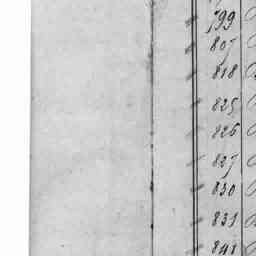 799
807
818
825
826
827
830
831
841